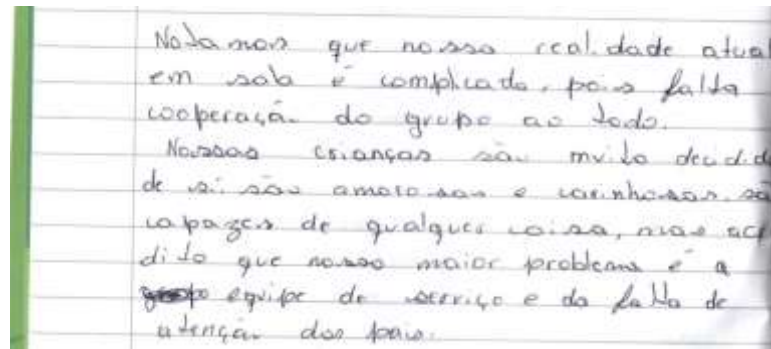 Notamos que nossa realidade atual
em sala é complicada, pois falta
cooperação do grupo ao todo.
Nossas crianças são muito decidid
de si são amorosas e carinhosas, sã
capazes de qualquer coisa, mas acr
dito que nosso maior problema é a
equipe de serviço e da falta de
atenção dos pais.